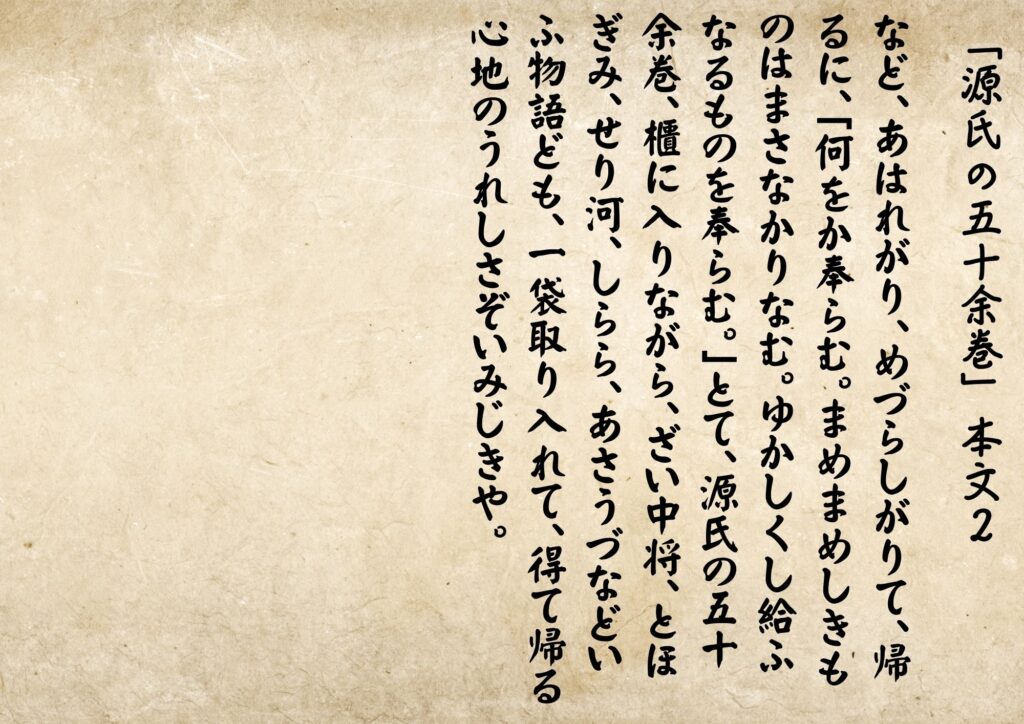 「源氏の五十余巻」 本文2
など、あはれがり、めづらしがりて、帰
るに、「何をか奉らむ。まめまめしきも
のはまさなかりなむ。ゆかしくし給ふ
なるものを奉らむ。」とて、源氏の五十
余巻、櫃に入りながら、ざい中将、とほ
ぎみ、せり河、しらら、あさうづなどい
ふ物語ども、一袋取り入れて、得て帰る
心地のうれしさぞいみじきや。